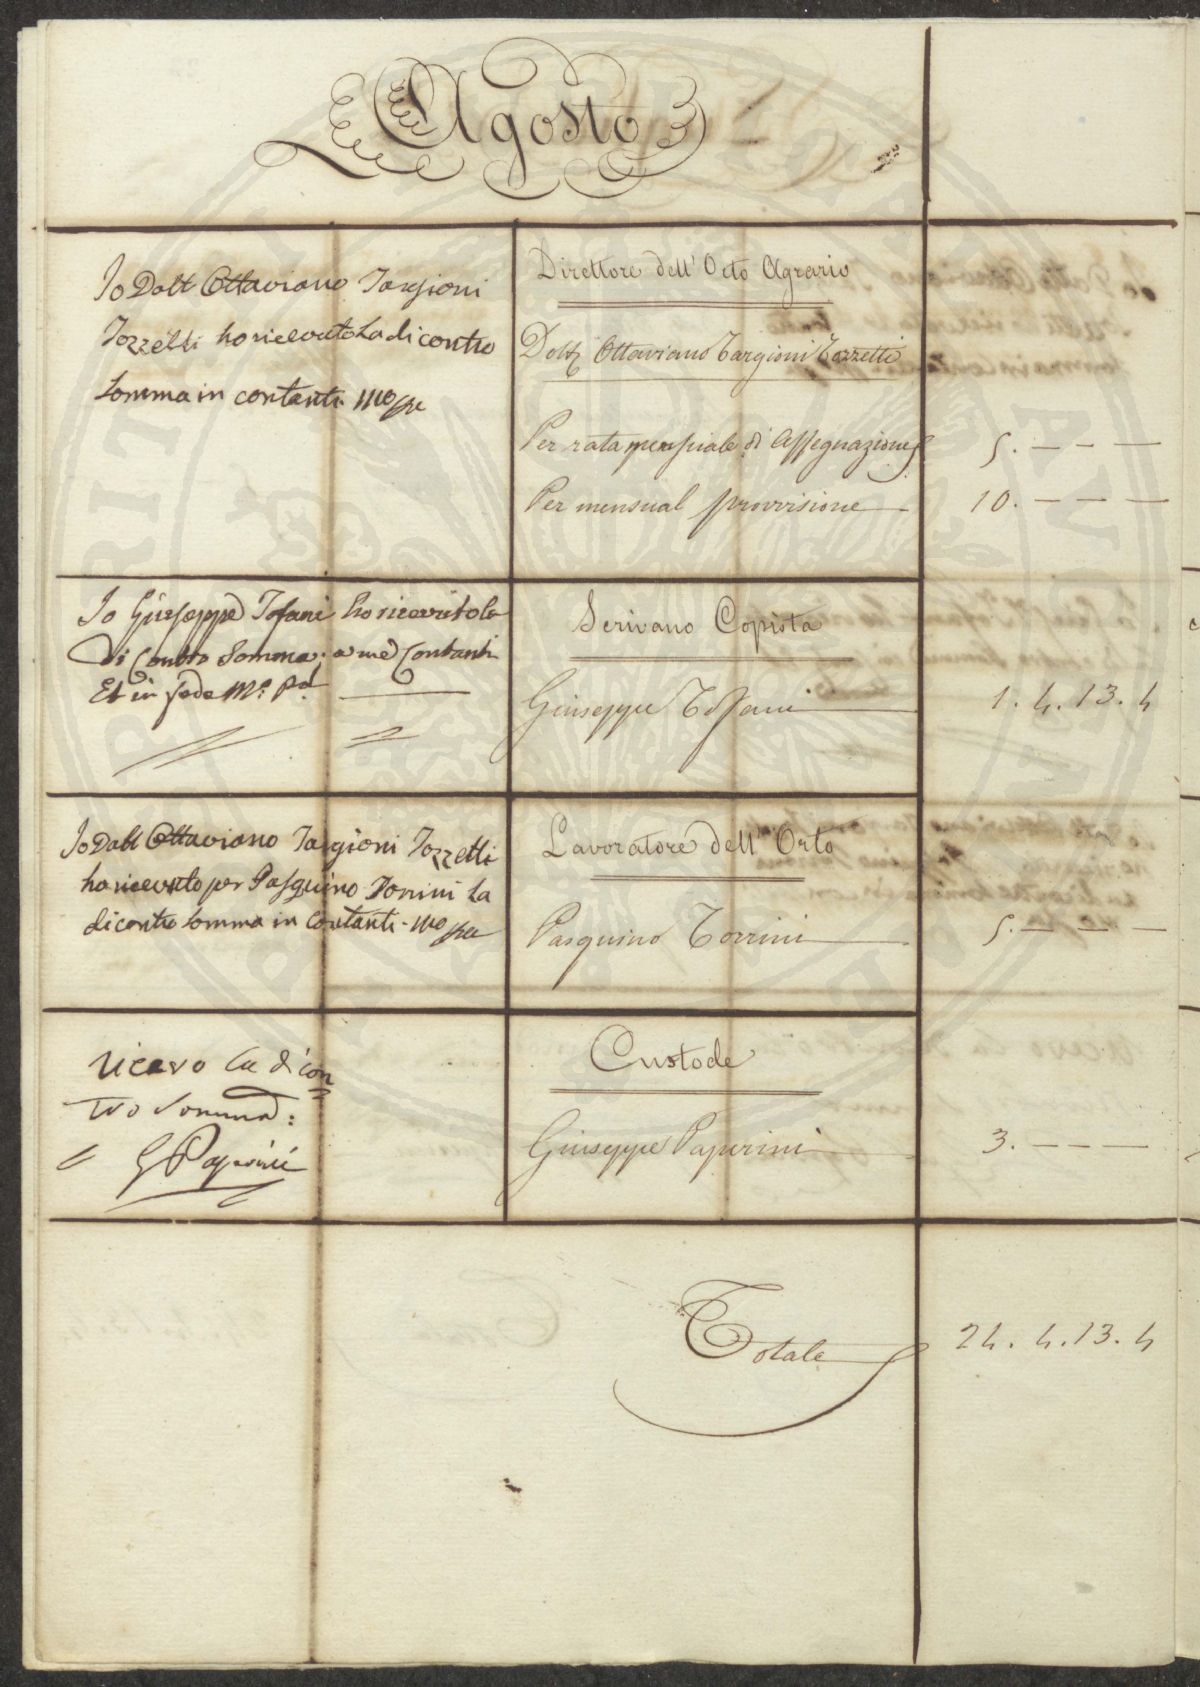 Agosto
Io Dott Ottaviano Targioni
Tozzetti ho ricevuto La di contro
Somma in contanti mo ppa
Direttore dell' Orto Agrario
Dott Ottaviano Targioni Tozzetti
Per rata mensuale di Assegnazione
5. — — —
Per mensual provvisione
10. — — —
Io Giuseppe Tofani ho ricevuto la
di Contro Somma; a me Contanti
Et in fede Mo. Pa
Scrivano Copista
Giuseppe Tofani
1. 4. 13. 4
Io Dott Ottaviano Targioni Tozzetti
ho ricevuto per Pasquino Torrini La
di contro Somma in Contanti - mo ppa
Lavoratore dell' Orto
Pasquino Torrini
5. — — —
Custode
ricevo la di con
tro Somma:
G Paperini
Giuseppe Paperini
3. — — —
Totale
24. 4. 13. 4